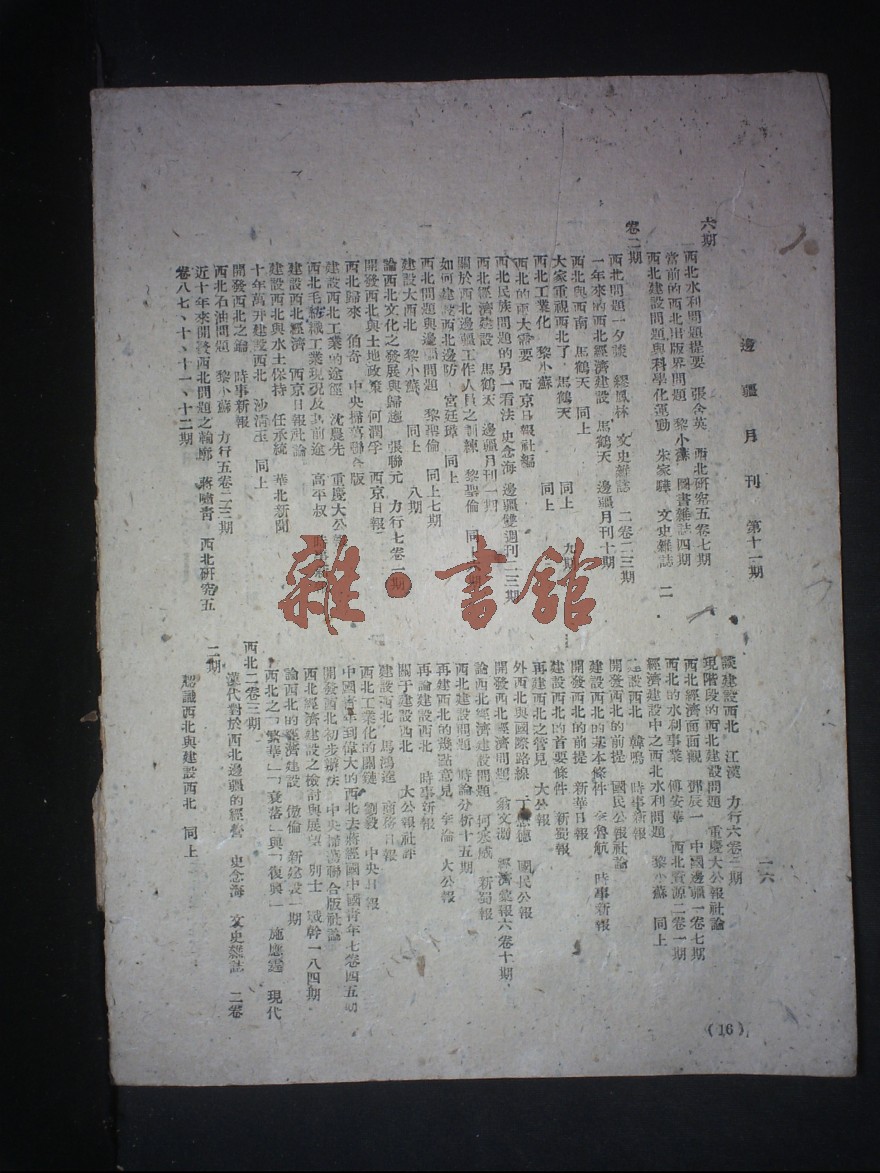 邊疆月刊 第十一期
一六
西北水利問題提要 張含英 西北研究五卷七期
六期
當前的西北出版界問題 黎小蘇 圖書雜誌四期
西北建設問題與科學化運動 朱家驊 文史雜誌 二
卷二期
西北問題一夕談 繆鳳林 文史雜誌 二卷二三期
一年來的西北經濟建設 馬鶴天 邊疆月刊十期
西北與西南 馬鶴天 同上
大家重視西北了 馬鶴天 同上 九期
西北工業化 黎小蘇 同上
西北的重大需要 西京日報社編
西北民族問題的另一看法 史念海 邊疆雙週刊二三期
西北經濟建設 馬鶴天 邊疆月刊一期
關於西北邊疆工作人員之訓練 黎聖倫 同上
如何建設西北邊防 宮廷璋 同上
西北問題與邊疆問題 黎聖倫 同上七期
建設大西北 黎小蘇 同上 八期
論西北文化之發展與歸趨 張聯元 力行七卷一期
開發西北與土地政策 何潤孚 西京日報
西北歸來 伯奇 中央掃蕩聯合版
建設西北工業的途徑 沈農先 重慶大公報
西北毛紡織工業現況及其前途 高平叔
建設西北經濟 西京日報社論
建設西北與水土保持 任承統 華北新聞
十年萬井建設西北 沙清玉 同上
開發西北之論 時事新報
西北石油問題 黎小蘇 力行五卷二三期
近十年來開發西北問題之輪廓 蔣嘯青 西北研究五
卷八七、十、十一、十二期
談建設西北 江漢 力行六卷三期
現階段的西北建設問題 重慶大公報社論
西北經濟面面觀 鄧辰一 中國邊疆一卷七期
西北的水利事業 傅安華 西北資源二卷一期
經濟建設中之西北水利問題 黎小蘇 同上
建設西北 韓鳴 時事新報
開發西北的前提 國民公報社論
建設西北的基本條件 李魯航 時事新報
開發西北的前提 新華日報
建設西北的首要條件 新蜀報
再建西北之管見 大公報
外西北與國際路線 丁慕德 國民公報
開發西北經濟問題 翁文灝 經濟彙報六卷十期
論西北經濟建設問題 何家成 新蜀報
西北建設問題 時論分析十五期
再建西北的幾點意見 李瀹 大公報
再論建設西北 時事新報
關于建設西北 大公報社評
建設西北 馬鴻逵 商務日報
西北工業化的關鍵 劉毅 中央日報
中國青年到偉大的西北去 蔣經國 中國青年七卷四五期
開發西北初步辦法 中央掃蕩聯合版社論
西北經濟建設之檢討與展望 別士 戰幹一八四期
論西北的經濟建設 傲倫 新建設一期
西北之「繁華」「衰落」與「復興」 施應霆 現代
西北二卷三期
漢代對於西北邊疆的經營 史念海 文史雜誌 二卷
二期
認識西北與建設西北 同上
(16)
雜·書館